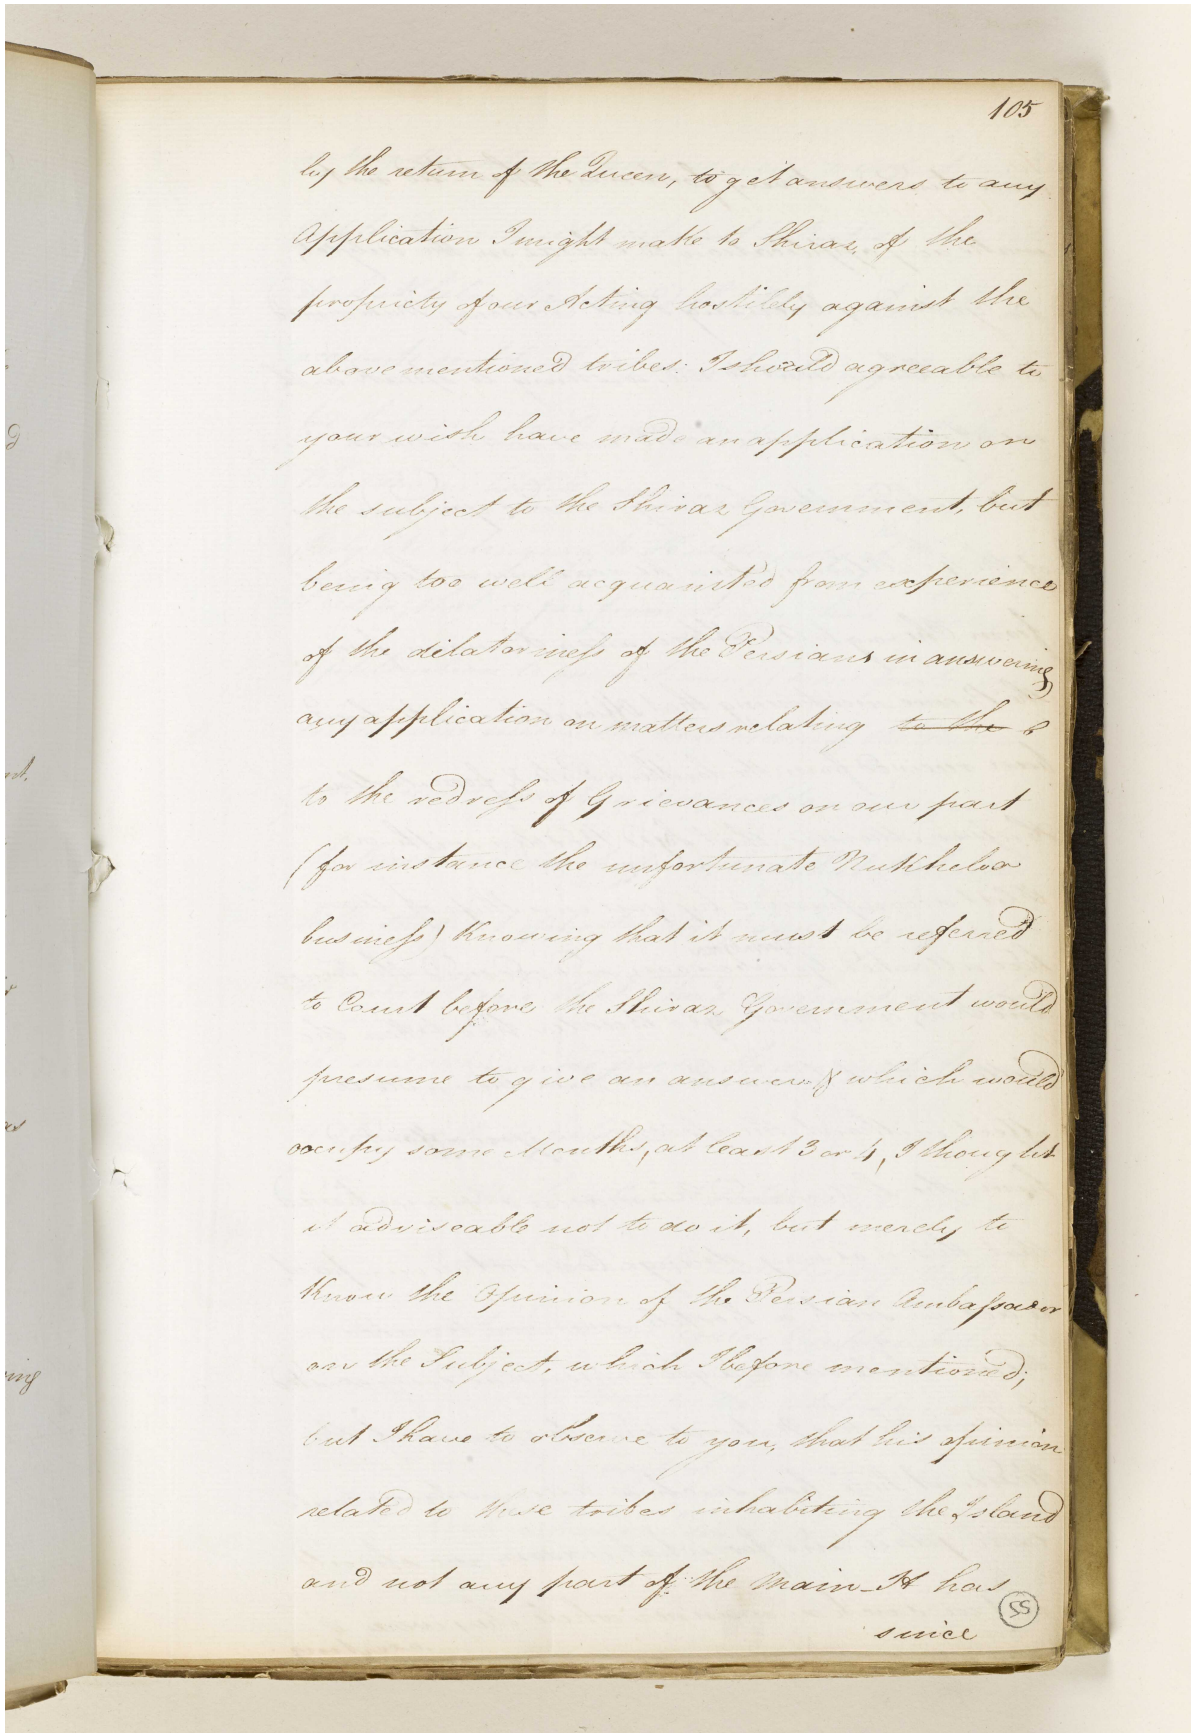 105
by the return of the Queen, to get answers to any
Application I might make to Shiraz, of the
propriety of our Acting hostilely against the
above mentioned tribes: I should agreeable to
your wish have made an application on
the subject to the Shiraz Government, but
being too well acquainted from experience
of the dilatoriness of the Persians in answering
any application on matters relating to the
to the redress of Grievances on our part
(for instance the unfortunate Nukheloo
business) Knowing that it must be referred
to Court before the Shiraz Government would
presume to give an answer & which would
occupy some Months, at least 3 or 4, I thought
it adviseable not to do it, but merely to
Know the Opinion of the Persian Ambassador
on the Subject, which I before mentioned;
but I have to observe to you, that his opinion
related to these tribes inhabiting the Island
and not any part of the Main_It has
55
since
d
nt.
r
as
ing